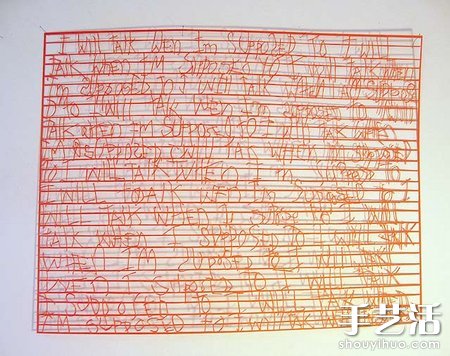 I WILL TALK WEN Im SUPPOSED TO I WILL
TALK WHEN I'M SUPPOSED TO I WILL TALK WHEN
I'm SUPPOSED TO I WILL TALK WHEN I AM SUPPOSED
TO I WILL TALK WEN I'm SUPPOSED TO
TALK WHEN I'M SUPPOSED TO I WILL TALK WHEN
I'M SUPPOSED I WILL TALK WHEN SUPPOSED
TO I WILL TALK WHEN I'm SUPPOSED TO
I WILL TALK WEN I'm SUPPOSED TO I
WILL TALK WHEN TO I WILL
TALK WHEN I SUPPOSED TO I WILL TALK
WHEN I'M SUPPOSED TO I WILL TALK
TO I WILL TALK
SUPPOSED TO I WILL TALK
I'M SUPPOSED TO I WILL TALK
手艺活
shouyihuo.com